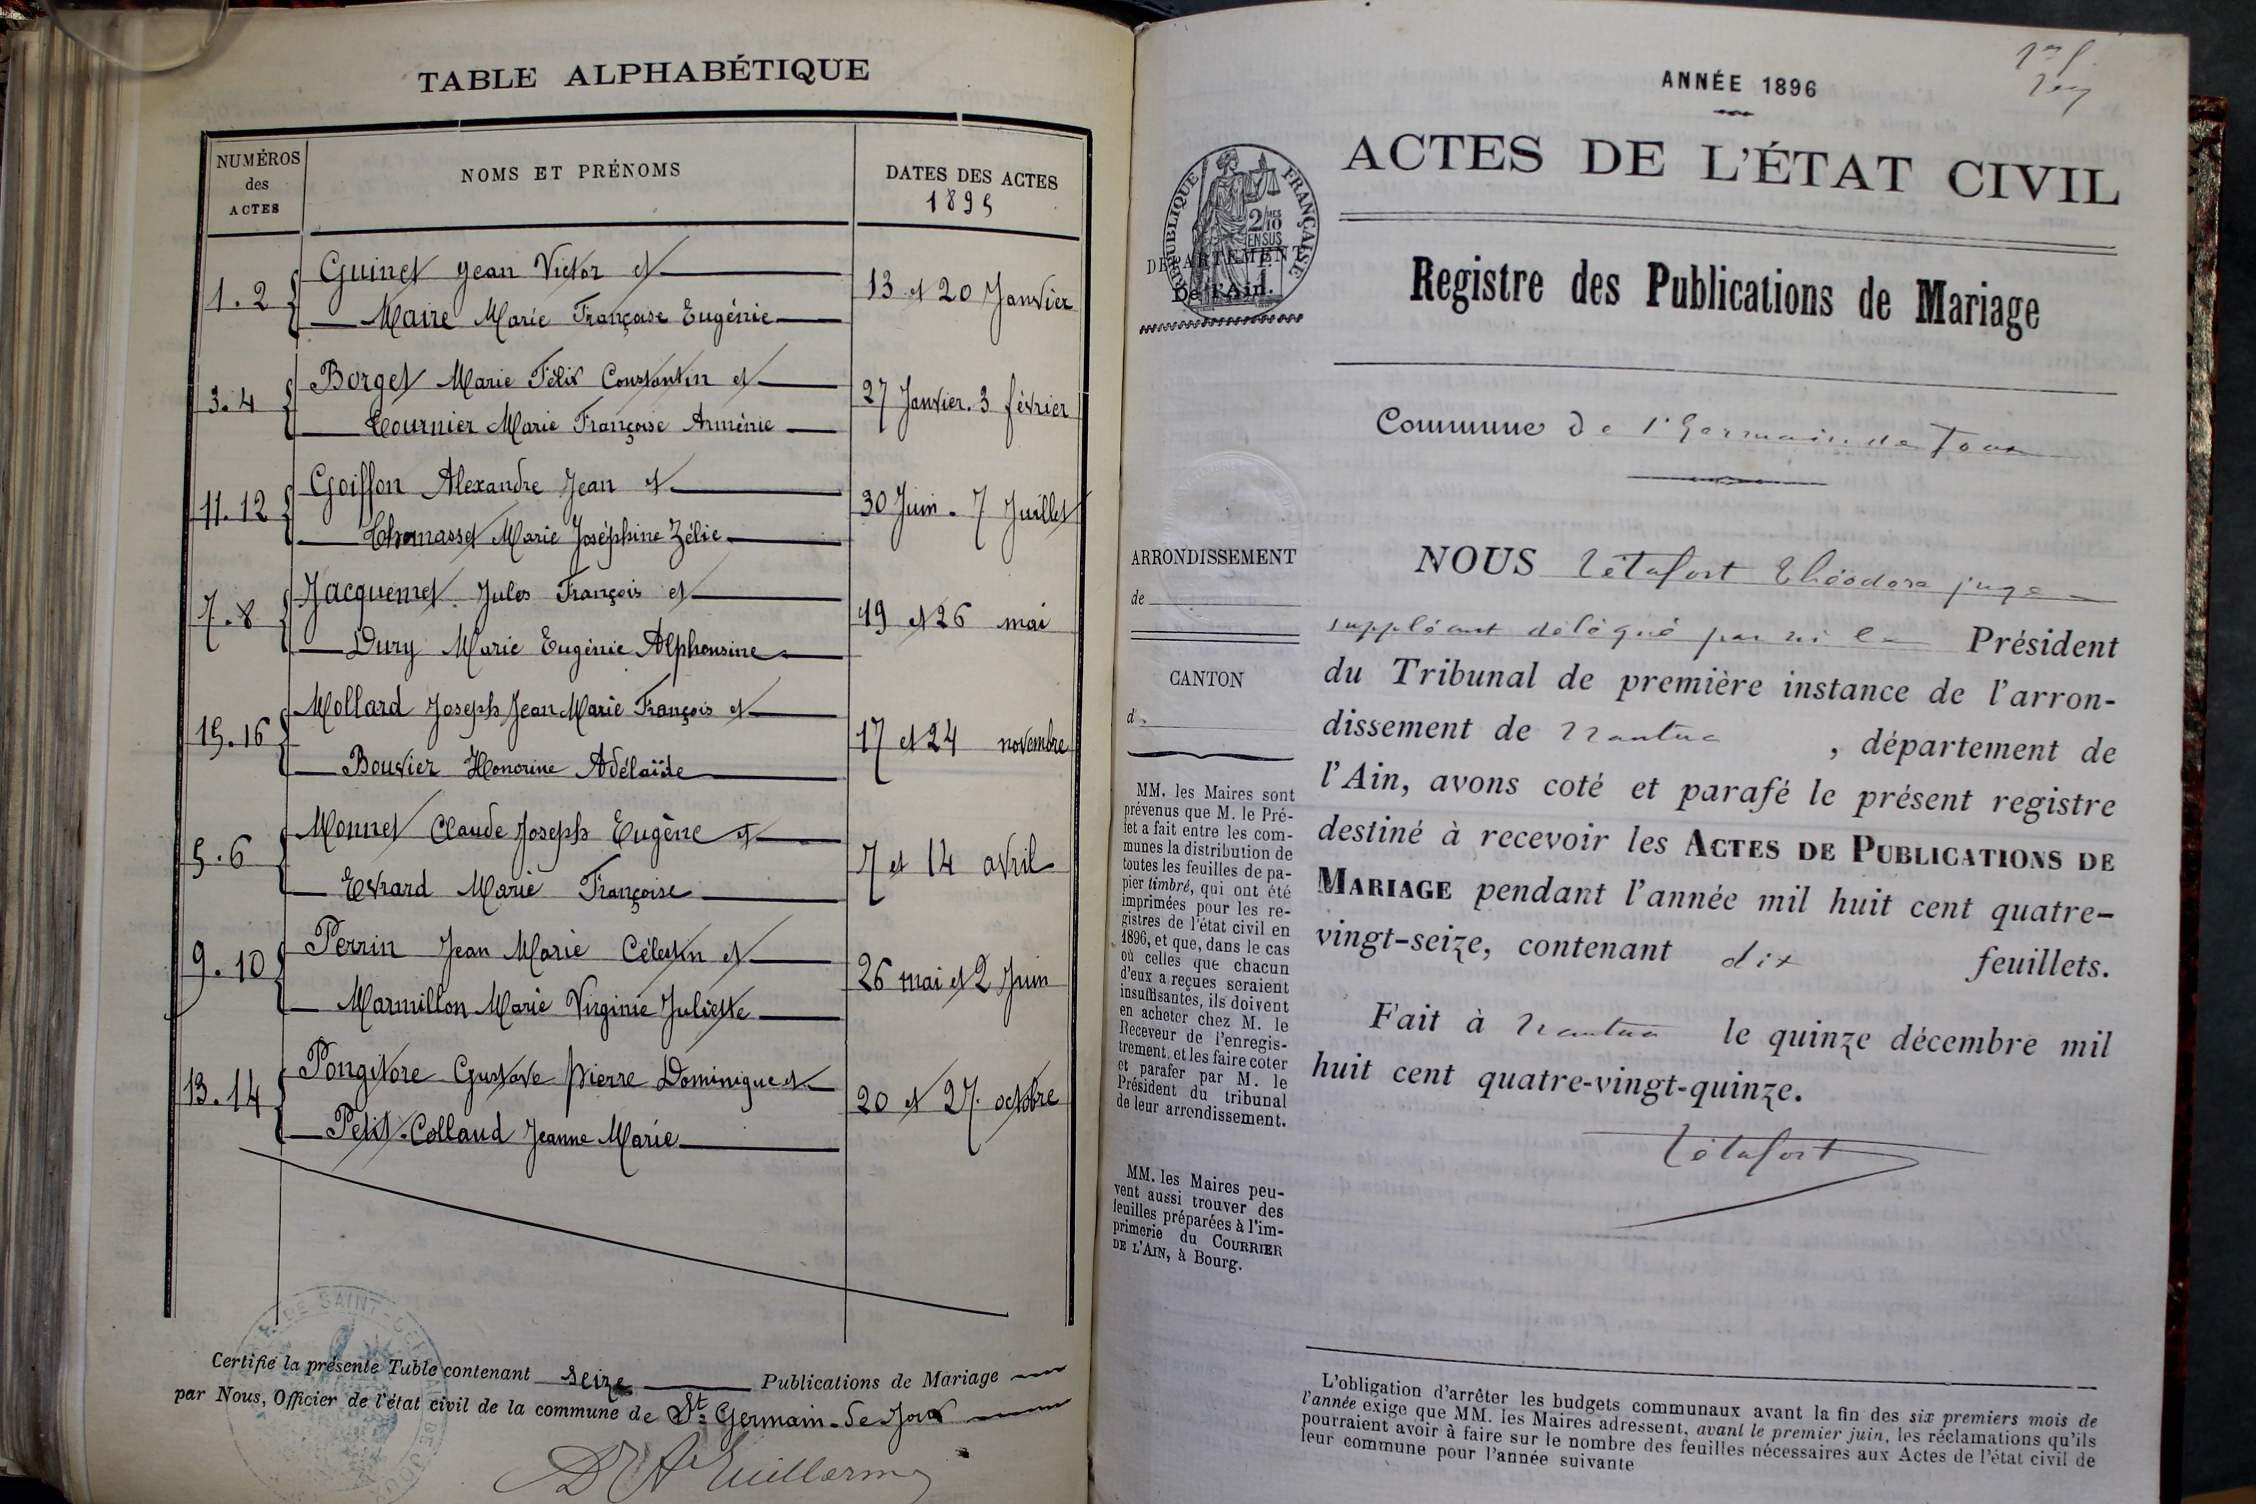 TABLE ALPHABÉTIQUE
NUMÉROS des ACTES
NOMS ET PRÉNOMS
DATES DES ACTES
1895
1.2
Guinet Jean Victor et
Maire Marie Françoise Eugénie
13 et 20 Janvier
3.4
Borget Marie Félix Constantin et
Tournier Marie Françoise Arménie
27 Janvier. 3 février
11.12
Goiffon Alexandre Jean et
Thomasset Marie Joséphine Zélie
30 Juin. 7 Juillet
7.8
Jacquemet Jules François et
Dury Marie Eugénie Alphonsine
19 et 26 mai
15.16
Mollard Joseph Jean Marie François et
Bouvier Honorine Adélaïde
17 et 24 novembre
5.6
Monnet Claude Joseph Eugène et
Evrard Marie Françoise
7 et 14 avril
9.10
Perrin Jean Marie Célestin et
Marmillon Marie Virginie Juliette
26 mai et 2 Juin
13.14
Pongitore Gustave Pierre Dominique et
Petit-Collaud Jeanne Marie
20 et 27 octobre
Certifié la présente Table contenant seize Publications de Mariage
par Nous, Officier de l'état civil de la commune de St Germain-de-Joux
Dr A Guillermo
ANNÉE 1896
ACTES DE L'ÉTAT CIVIL
RÉPUBLIQUE FRANÇAISE
2/10 EN SUS
DÉPARTEMENT
De l'Ain.
Registre des Publications de Mariage
Commune de St Germain de Joux
ARRONDISSEMENT
de
CANTON
d
MM. les Maires sont
prévenus que M. le Pré-
fet a fait entre les com-
munes la distribution de
toutes les feuilles de pa-
pier timbré, qui ont été
imprimées pour les re-
gistres de l'état civil en
1896, et que, dans le cas
où celles que chacun
d'eux a reçues seraient
insuffisantes, ils doivent
en acheter chez M. le
Receveur de l'enregis-
trement, et les faire coter
et parafer par M. le
Président du tribunal
de leur arrondissement.
MM. les Maires peu-
vent aussi trouver des
feuilles préparées à l'im-
primerie du COURRIER
DE L'AIN, à Bourg.
NOUS Tétafort Théodore juge
suppléant délégué par M le Président
du Tribunal de première instance de l'arron-
dissement de Nantua, département de
l'Ain, avons coté et parafé le présent registre
destiné à recevoir les ACTES DE PUBLICATIONS DE
MARIAGE pendant l'année mil huit cent quatre-
vingt-seize, contenant dix feuillets.
Fait à Nantua le quinze décembre mil
huit cent quatre-vingt-quinze.
Tétafort
L'obligation d'arrêter les budgets communaux avant la fin des six premiers mois de
l'année exige que MM. les Maires adressent, avant le premier juin, les réclamations qu'ils
pourraient avoir à faire sur le nombre des feuilles nécessaires aux Actes de l'état civil de
leur commune pour l'année suivante